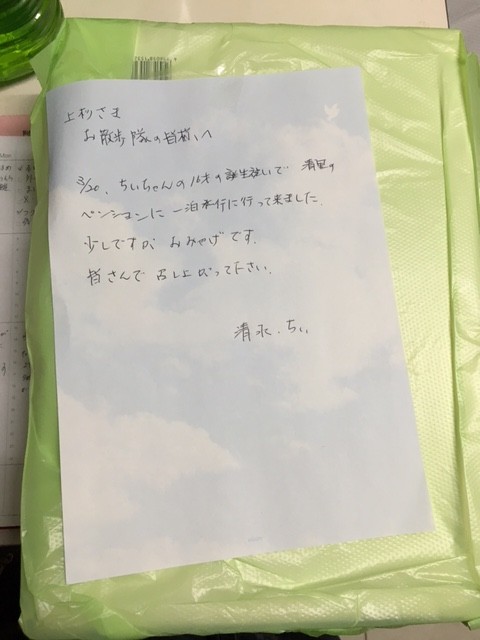 上杉さま
お散歩隊の皆様へ
3/20、ちぃちゃんの16才の誕生祝いで 清里の
ペンションに一泊旅行に行って来ました。
少しですが おみやげです。
皆さんで召し上がって下さい。
清水・ちぃ